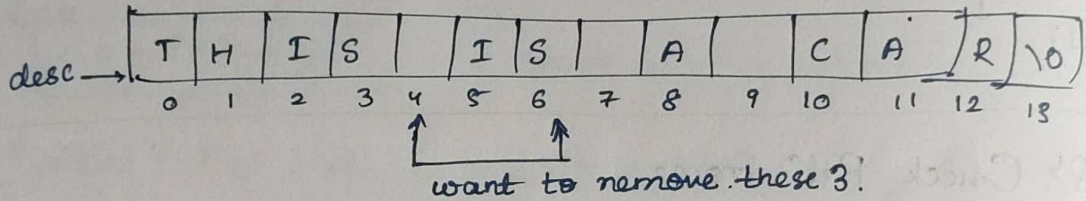 T H I S I S A C A R \0
desc →
0 1 2 3 4 5 6 7 8 9 10 11 12 13
want to remove these 3.